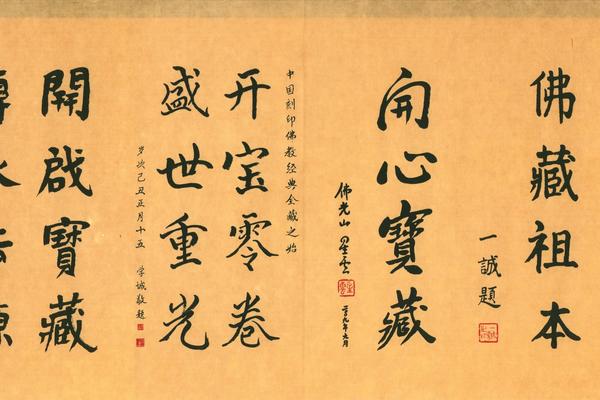 佛藏祖本
一誠題
開心寶藏
佛光山 星雲
中国刻印佛教经典全藏之始
开宝零卷
盛世重光
岁次己丑正月十五 学诚敬题
開啟寶藏